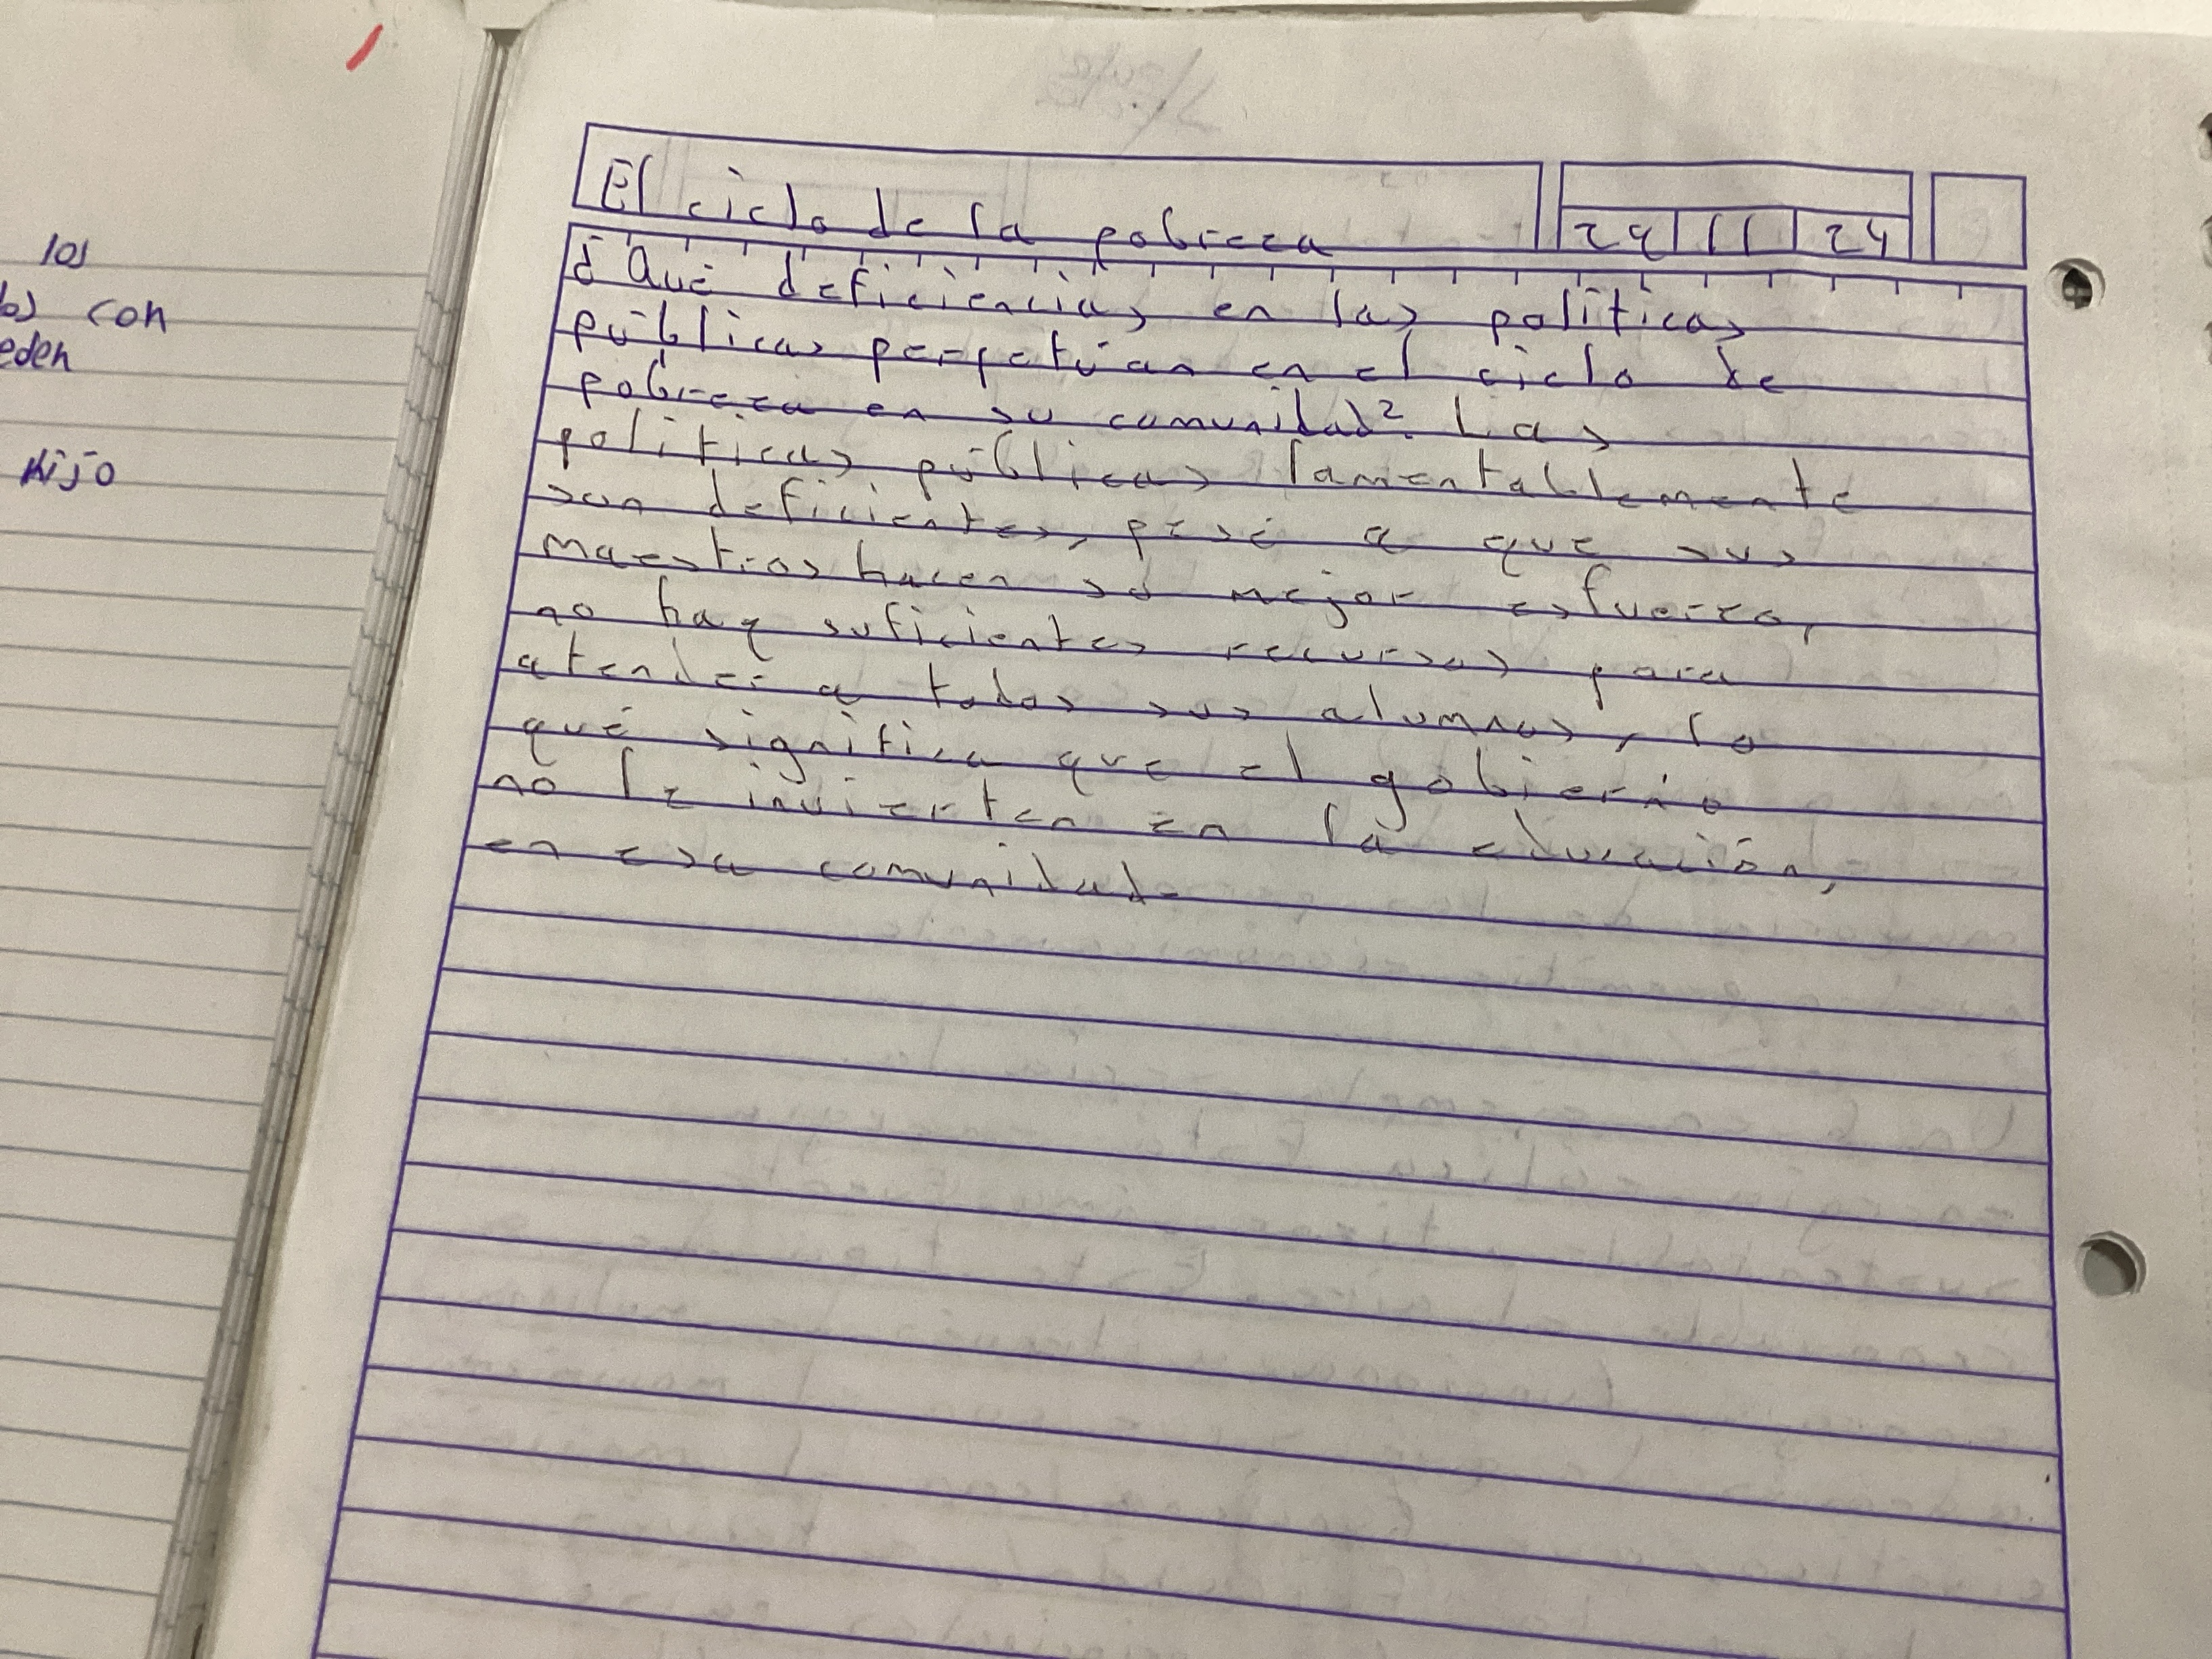 los
con
eden
Hijo
El ciclo de la pobreza
29 11 24
¿Qué deficiencias en las políticas
públicas perpetúan en el ciclo de
pobreza en su comunidad? Las
políticas públicas lamentablemente
son deficientes, pesé a que sus
maestros hacen su mejor esfuerzo,
no hay suficientes recursos para
atender a todos sus alumnos, lo
qué significa que el gobierno
no le invierten en la educación,
en esa comunidad.